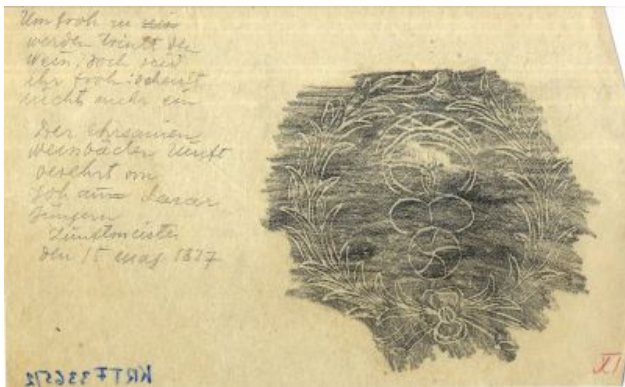 Um froh zu sein
werden trinkt den
Wein, doch seid
ihr froh: schenkt
nicht mehr ein
Der Ehrsamen
Weissbäcker Zunft
verehrt von
Johann
Zunftmeister
den 15 may 1817
XI